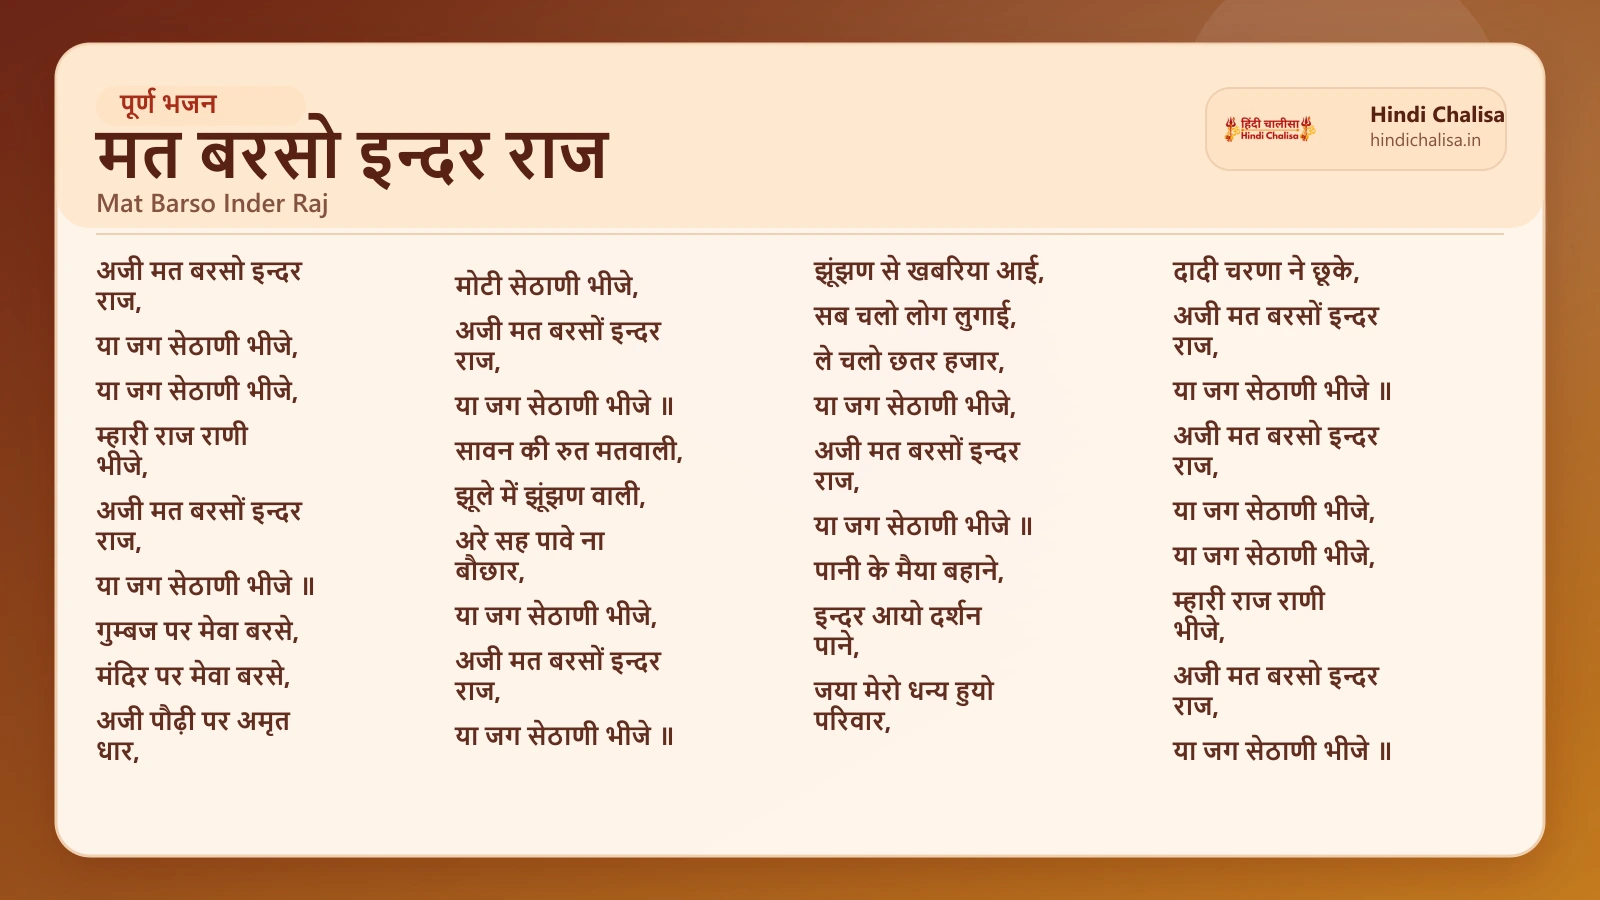 पूर्ण भजन
मत बरसो इन्दर राज
Mat Barso Inder Raj
हिंदी चालीसा
Hindi Chalisa
Hindi Chalisa
hindichalisa.in
अजी मत बरसो इन्दर
राज,
या जग सेठाणी भीजे,
या जग सेठाणी भीजे,
म्हारी राज राणी
भीजे,
अजी मत बरसों इन्दर
राज,
या जग सेठाणी भीजे ॥
गुम्बज पर मेवा बरसे,
मंदिर पर मेवा बरसे,
अजी पौढ़ी पर अमृत
धार,
मोटी सेठाणी भीजे,
अजी मत बरसों इन्दर
राज,
या जग सेठाणी भीजे ॥
सावन की रुत मतवाली,
झूले में झूंझण वाली,
अरे सह पावे ना
बौछार,
या जग सेठाणी भीजे,
अजी मत बरसों इन्दर
राज,
या जग सेठाणी भीजे ॥
झूंझण से खबरिया आई,
सब चलो लोग लुगाई,
ले चलो छतर हजार,
या जग सेठाणी भीजे,
अजी मत बरसों इन्दर
राज,
या जग सेठाणी भीजे ॥
पानी के मैया बहाने,
इन्दर आयो दर्शन
पाने,
जया मेरो धन्य हुयो
परिवार,
दादी चरणा ने छूके,
अजी मत बरसों इन्दर
राज,
या जग सेठाणी भीजे ॥
अजी मत बरसो इन्दर
राज,
या जग सेठाणी भीजे,
या जग सेठाणी भीजे,
म्हारी राज राणी
भीजे,
अजी मत बरसो इन्दर
राज,
या जग सेठाणी भीजे ॥